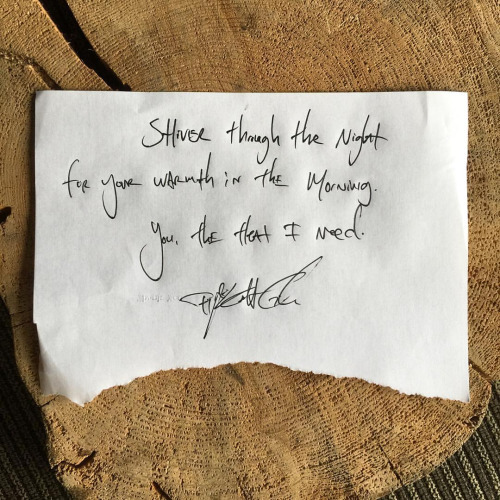 Shiver through the Night
for your warmth in the Morning.
You, the Heat I need.